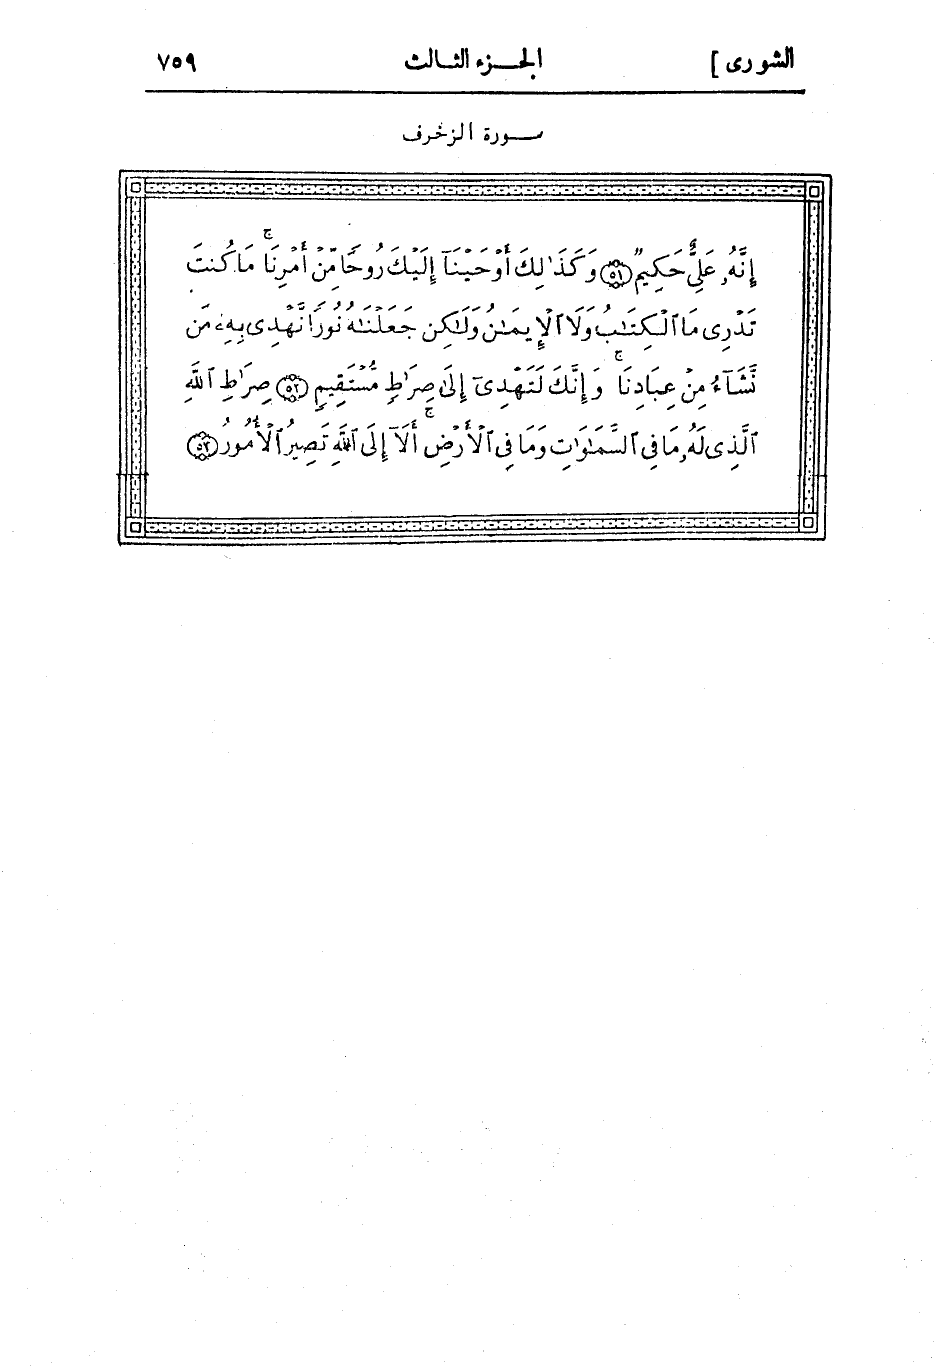 الشورى ] الجزء الثالث ٧٥٩
سورة الزخرف
إِنَّهُۥ عَلِيٌّ حَكِيمٌ ﴿٥١﴾ وَكَذَٰلِكَ أَوْحَيْنَآ إِلَيْكَ رُوحًا مِّنْ أَمْرِنَا ۚ مَا كُنتَ
تَدْرِى مَا ٱلْكِتَٰبُ وَلَا ٱلْإِيمَٰنُ وَلَٰكِن جَعَلْنَٰهُ نُورًا نَّهْدِى بِهِۦ مَن
نَّشَآءُ مِنْ عِبَادِنَا ۚ وَإِنَّكَ لَتَهْدِىٓ إِلَىٰ صِرَٰطٍ مُّسْتَقِيمٍ ﴿٥٢﴾ صِرَٰطِ ٱللَّهِ
ٱلَّذِى لَهُۥ مَا فِى ٱلسَّمَٰوَٰتِ وَمَا فِى ٱلْأَرْضِ ۗ أَلَآ إِلَى ٱللَّهِ تَصِيرُ ٱلْأُمُورُ ﴿٥٣﴾